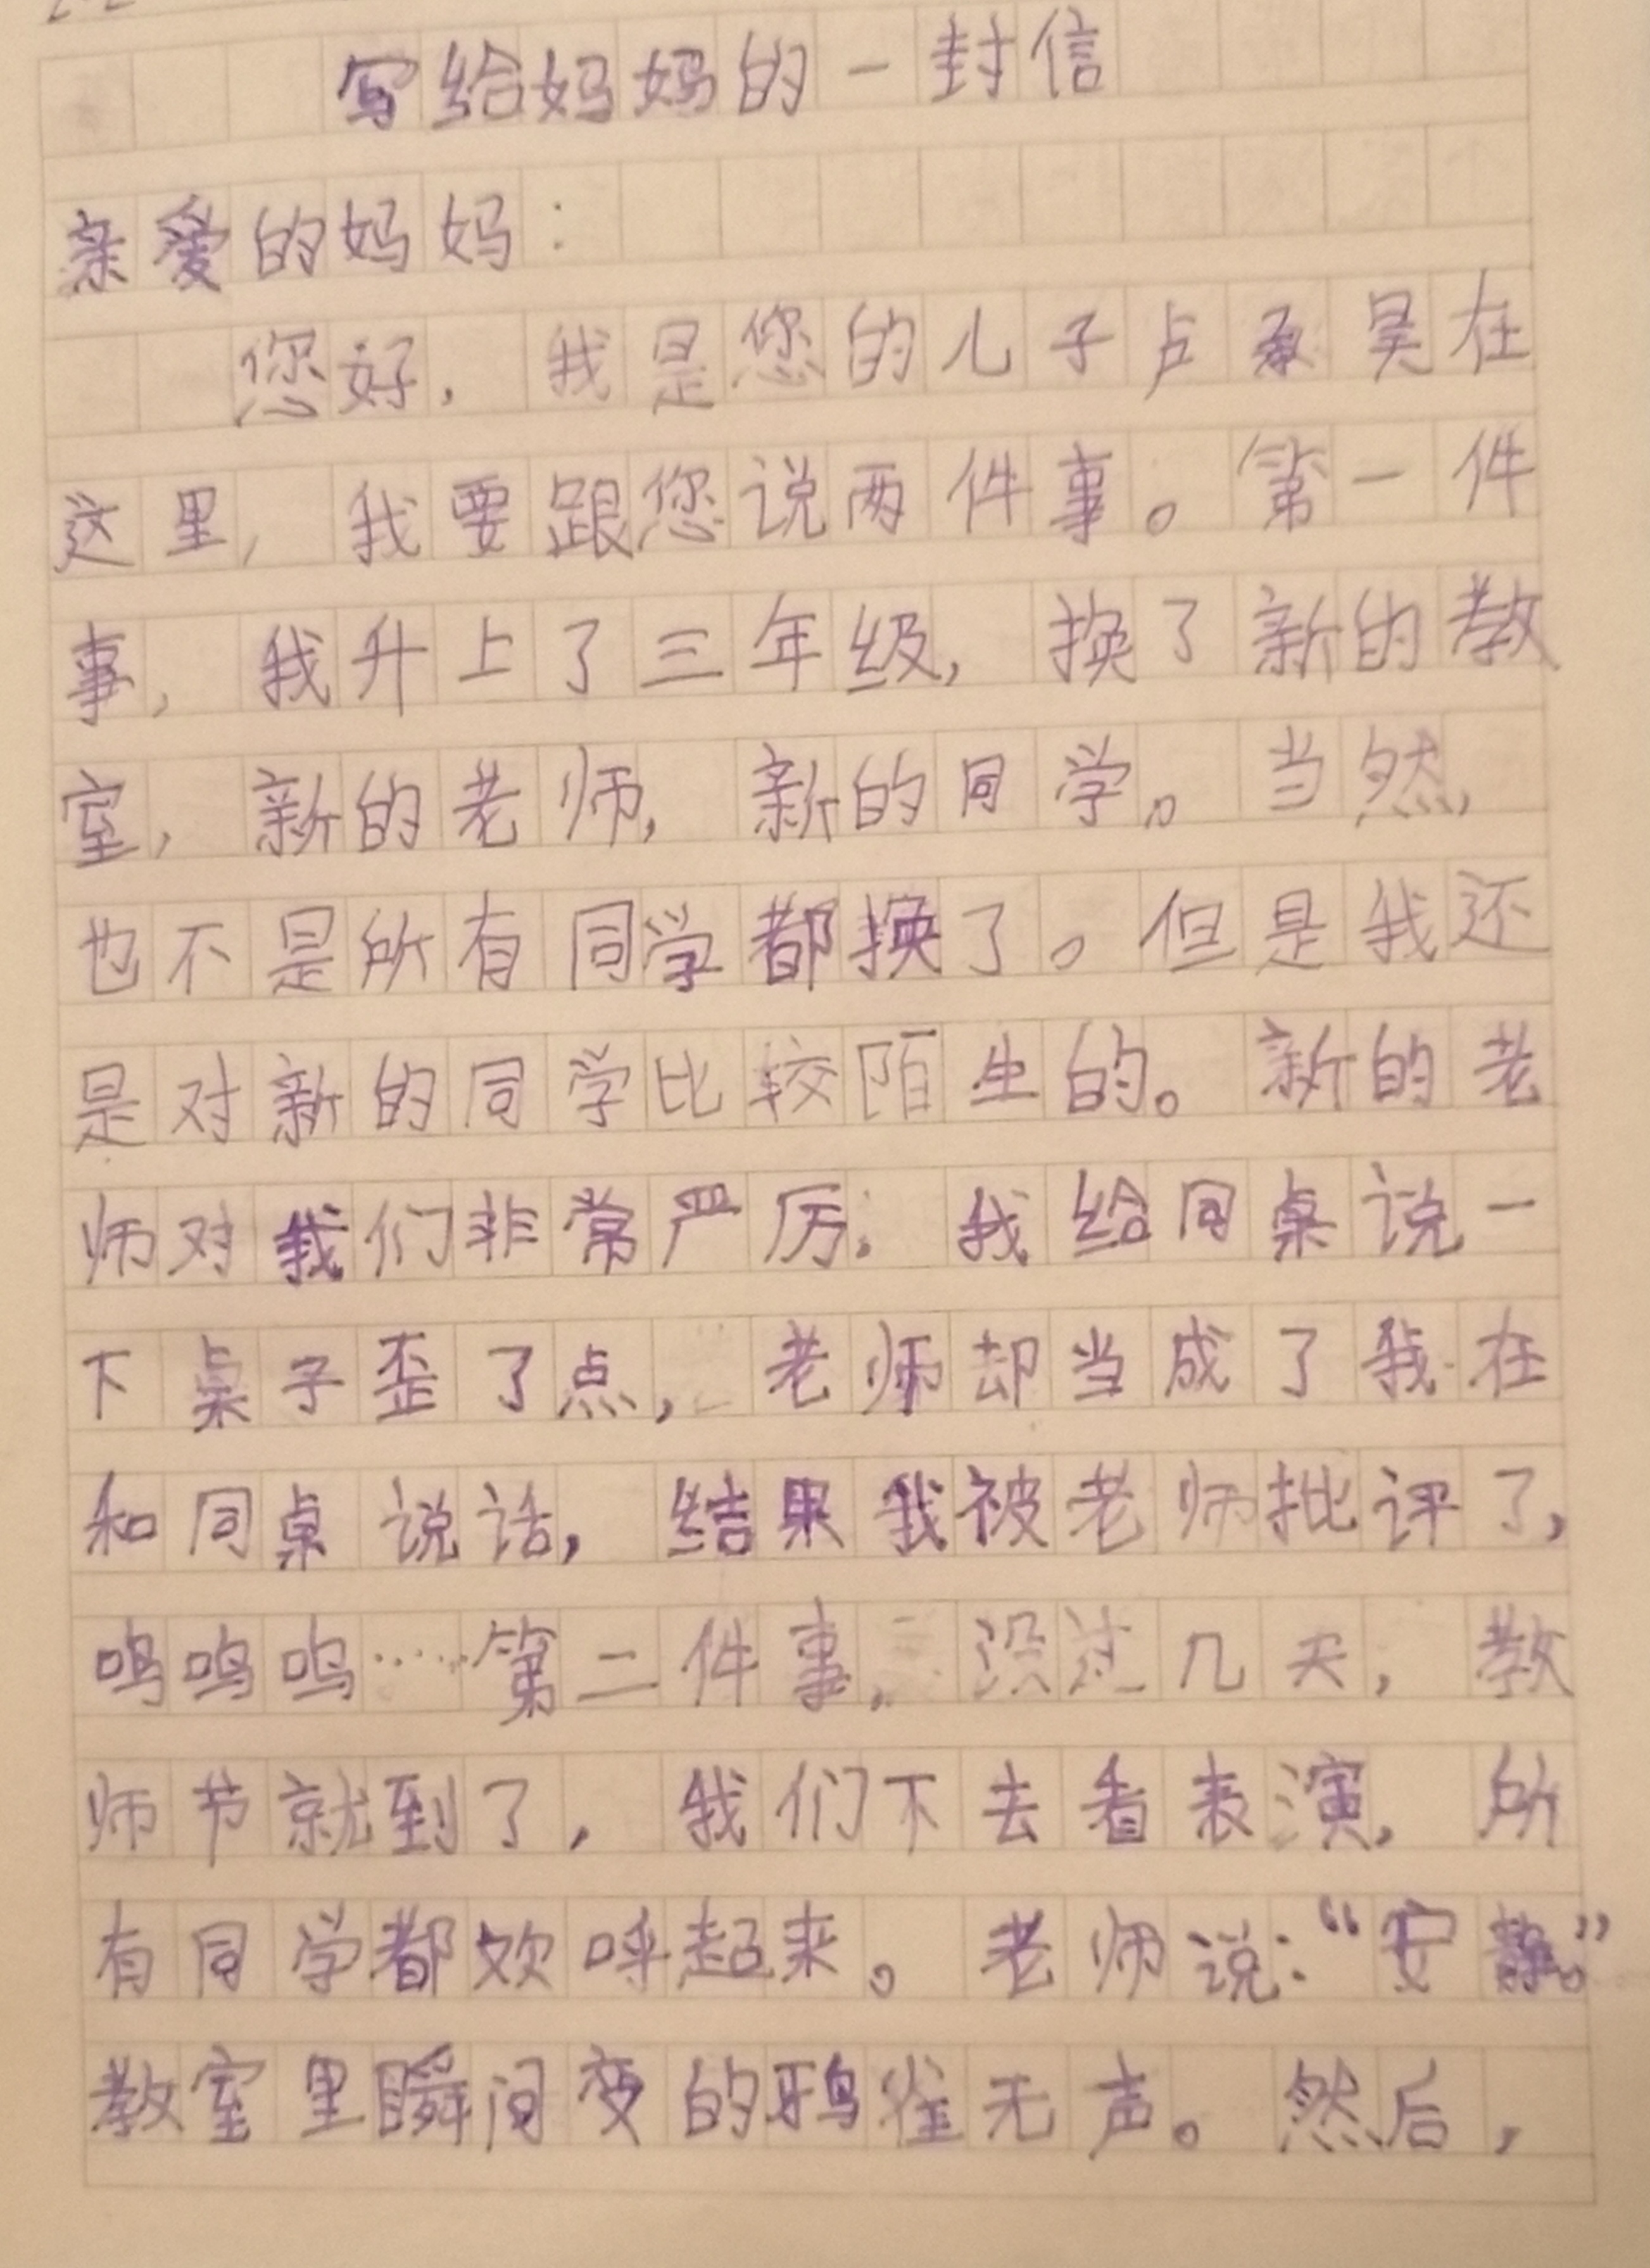 写给妈妈的一封信
亲爱的妈妈：
您好，我是您的儿子卢承昊在
这里，我要跟您说两件事。第一件
事，我升上了三年级，换了新的教
室，新的老师，新的同学。当然，
也不是所有同学都换了。但是我还
是对新的同学比较陌生的。新的老
师对我们非常严厉：我给同桌说一
下桌子歪了点，老师却当成了我在
和同桌说话，结果我被老师批评了，
呜呜呜……第二件事，没过几天，教
师节就到了，我们下去看表演，所
有同学都欢呼起来。老师说：“安静。”
教室里瞬间变的鸦雀无声。然后，